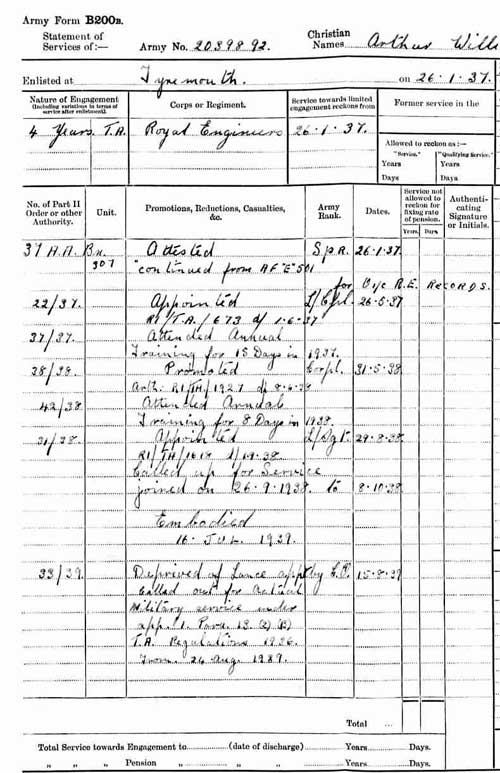 Army Form B200B.
Statement of Services of:—
Army No. 2039892.
Christian Names Arthur Will
Enlisted at Tynemouth. on 26.1.37.
Nature of Engagement (Including variations in terms of service after enlistment).
Corps or Regiment.
Service towards limited engagement reckons from
Former service in the
4 Years T.A.
Royal Engineers
26.1.37.
Allowed to reckon as:—
"Service." "Qualifying Service."
Years Years
Days Days
No. of Part II Order or other Authority.
Unit.
Promotions, Reductions, Casualties, &c.
Army Rank.
Dates.
Service not allowed to reckon for fixing rate of pension.
Years. Days
Authenticating Signature or Initials.
37 A.A. Bn. Attested Spr. 26.1.37.
307 "continued from A F "E" 501
for O i/c R.E. RECORDS.
22/37. Appointed L/Cpl. 26-5-37
RI/T.A./673 d/ 1-6-37
37/37. Attended Annual
Training for 15 Days in 1937.
28/38. Promoted Corpl. 31-5-38
Auth: RI/TA/1927 d/ 8-6-38
42/38 Attended Annual
Training for 8 Days in 1938.
31/38. Appointed L/Sgt. 29-8-38
RI/TA/1618
Called up for Service
joined on 26-9-1938 to 8-10-38
Embodied
16 JUL. 1939.
33/39. Deprived of Lance appt by C.O. 15-8-39
Called out for actual
military service under
app. 1. Para. 13
T.A. Regulations 1936.
From 24 Aug. 1939.
Total
Total Service towards Engagement to (date of discharge) Years Days.
" " " Pension " " " Years Days.